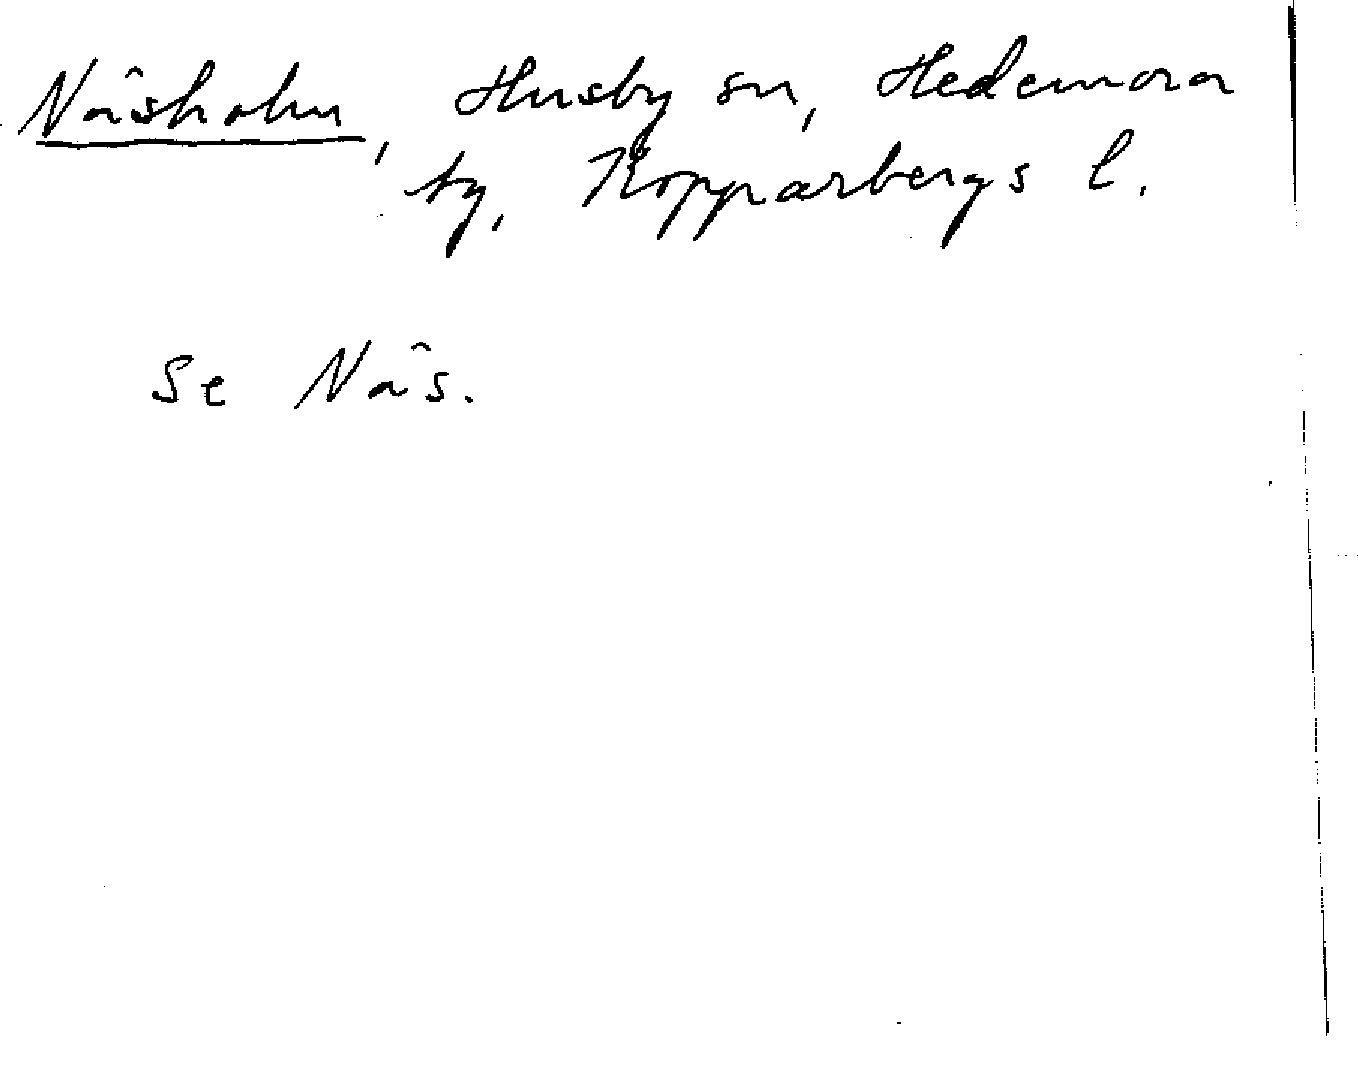 Näsholm, Husby sn, Hedemora
tg, Kopparbergs l.
Se Näs.